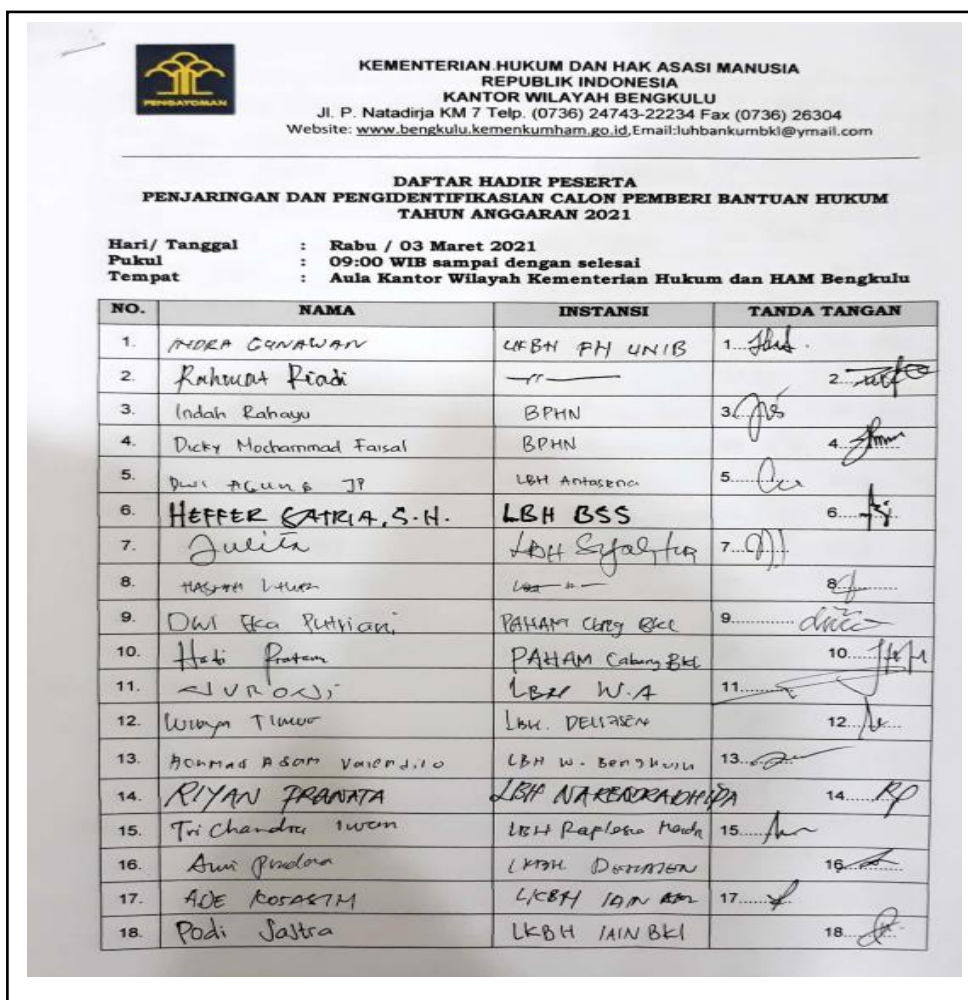 PENGAYOMAN
KEMENTERIAN HUKUM DAN HAK ASASI MANUSIA
REPUBLIK INDONESIA
KANTOR WILAYAH BENGKULU
Jl. P. Natadirja KM 7 Telp. (0736) 24743-22234 Fax (0736) 26304
Website: www.bengkulu.kemenkumham.go.id,Email:luhbankumbkl@ymail.com
DAFTAR HADIR PESERTA
PENJARINGAN DAN PENGIDENTIFIKASIAN CALON PEMBERI BANTUAN HUKUM
TAHUN ANGGARAN 2021
Hari/ Tanggal : Rabu / 03 Maret 2021
Pukul : 09:00 WIB sampai dengan selesai
Tempat : Aula Kantor Wilayah Kementerian Hukum dan HAM Bengkulu
NO. NAMA INSTANSI TANDA TANGAN
1. INDRA GUNAWAN FH UNIB 1
2. Rahmat Riadi 2
3. Indah Rahayu BPHN 3
4. Dicky Mochammad Faisal BPHN 4
5. Dwi AGUNG JP LBH Antasena 5
6. HEFFER SATRIA, S.H. LBH BSS 6
7. Julita LBH 7
8. 8
9. Dwi Eka Putriani PAHAM 9
10. Pratam PAHAM Cabang Bkl 10
11. LBH W.A 11
12. Timur LBH. 12
13. Adam LBH W. Bengkulu 13
14. RIYAN PRANATA LBH NARENDRADHIPA 14 RP
15. Tri Chandra LBH 15
16. 16
17. ADE KOSASIH LKBH IAIN 17
18. Podi Sastra LKBH IAIN BKl 18